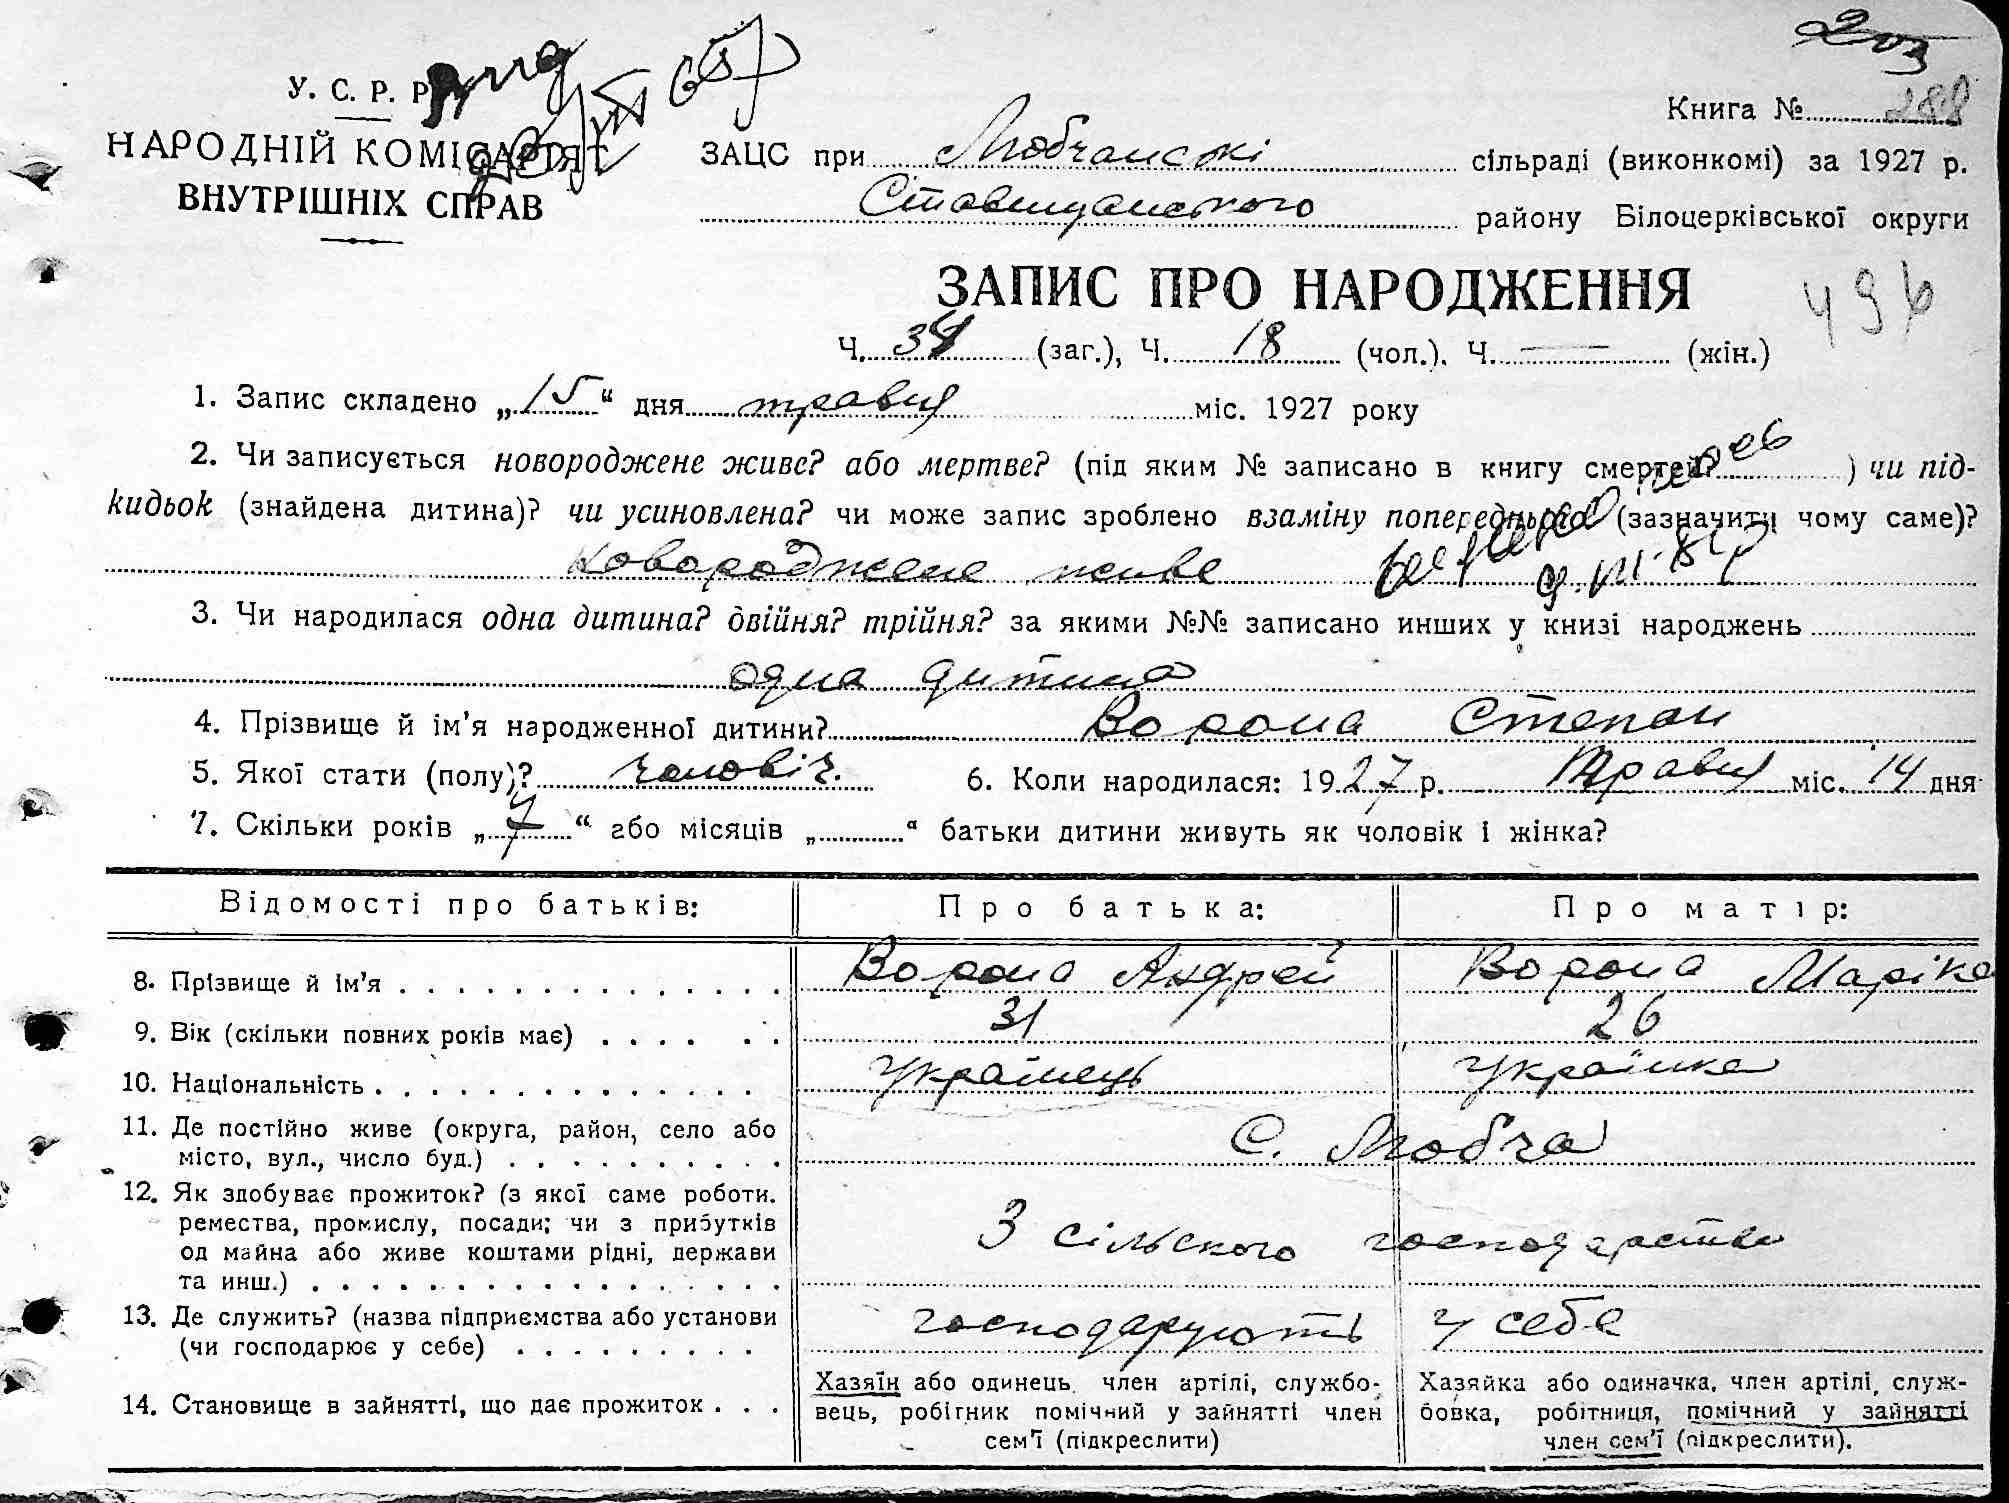 У. С. Р. Р.
НАРОДНІЙ КОМІСАРІЯТ
ВНУТРІШНІХ СПРАВ
203
Книга № 288
ЗАЦС при Любчанські сільраді (виконкомі) за 1927 р.
Ставищанського району Білоцерківської округи
ЗАПИС ПРО НАРОДЖЕННЯ
496
Ч. 34 (заг.), Ч. 18 (чол.). Ч. — (жін.)
1. Запис складено „15“ дня травня міс. 1927 року
2. Чи записується новороджене живе? або мертве? (під яким № записано в книгу смертей? ) чи під-
кидьок (знайдена дитина)? чи усиновлена? чи може запис зроблено взаміну попереднього (зазначити чому саме)?
Новороджене живе
3. Чи народилася одна дитина? двійня? трійня? за якими №№ записано инших у книзі народжень
одна дитина
4. Прізвище й ім'я народженної дитини? Ворона Степан
5. Якої стати (полу)? чоловіч. 6. Коли народилася: 1927 р. Травня міс. 14 дня
7. Скільки років „7“ або місяців „ “ батьки дитини живуть як чоловік і жінка?
Відомості про батьків: Про батька: Про матір:
8. Прізвище й ім'я Ворона Андрей Ворона Маріка
9. Вік (скільки повних років має) 31 26
10. Національність українець українка
11. Де постійно живе (округа, район, село або
місто, вул., число буд.) С. Любча
12. Як здобуває прожиток? (з якої саме роботи.
ремества, промислу, посади; чи з прибутків
од майна або живе коштами рідні, держави
та инш.) З сільского господарства
13. Де служить? (назва підприємства або установи
(чи господарює у себе) господарують у себе
14. Становище в зайнятті, що дає прожиток
Хазяїн або одинець, член артілі, службо-
вець, робігник помічний у зайнятті член
сем'ї (підкреслити)
Хазяйка або одиначка, член артілі, служ-
бовка, робітниця, помічний у зайнятті
член сем'ї (підкреслити).